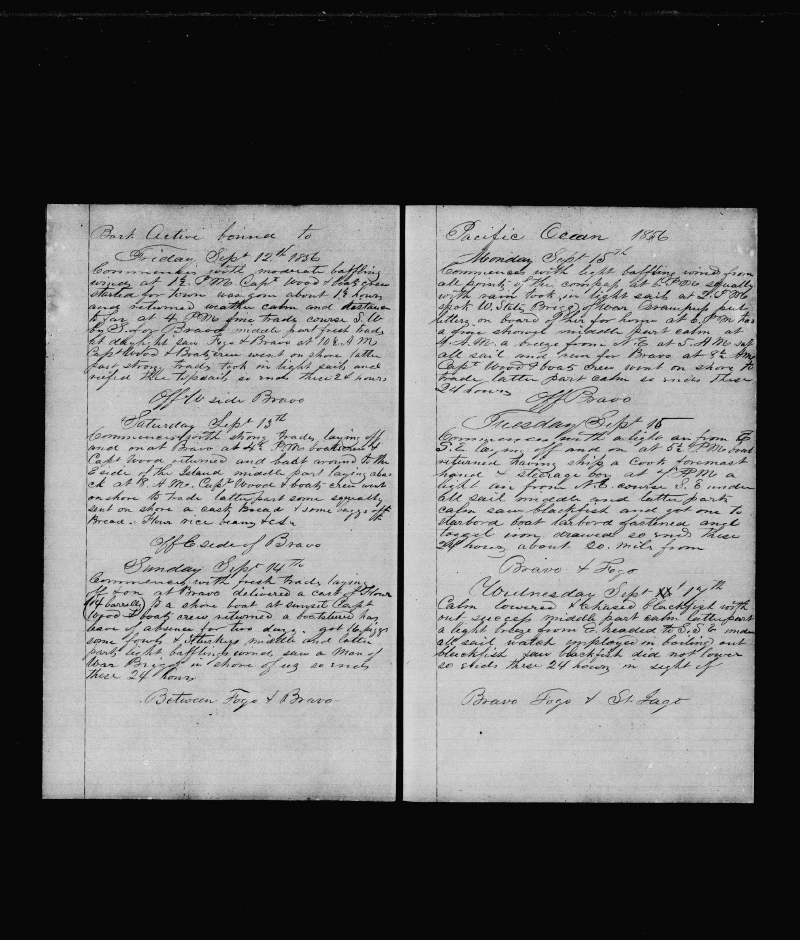 Bark Active bound to
Friday Sept 12th 1856
Commences with moderate baffling
winds at 1½ P.M. Capt Wood & boats crew
started for town was gone about 1½ hours
and returned weather calm and
to far at 4 P.M. fine trades course S.W.
by S. for Bravo middle part fresh trades
at daylight saw Fogo & Bravo at 10½ A.M
Capt Wood & Boats crew went on shore latter
part strong trades took in light sails and
reefed the topsails so ends these 24 hours
Off W side Bravo
Saturday Sept 13th
Commences with strong trades laying off
and on at Bravo at 4½ P.M.
Capt Wood returned and beat around to the
E side of the Island middle part laying aba
ck at 8 A.M. Capt Wood & boats crew went
on shore to trade latter part some squally
sent on shore a cask Bread & some bags of
Bread. Flour rice beans &c &c
Off E side of Bravo
Sunday Sept 14th
Commences with fresh trades laying
off & on at Bravo delivered a cask of Flour
(14 barrells) to a shore boat at sunset Capt
Wood & boats crew returned a boatsteerer has
leave of absence for two days. got 16 pigs
some fowls & Turkeys middle and latter
parts light baffling winds saw a Man of
War Brigg in shore of us so ends
these 24 hours
Between Fogo & Bravo
Pacific Ocean 1856
Monday Sept 15th
Commences with light baffling winds from
all points of the compass at 6 P.M. squally
with rain took in light sails at 2 P.M.
spoke U. States Brigg of War put
letters on board of her for home at 6 P.M. has
a fine shower middle part calm at
4 A.M. a breeze from N.E at 5 A.M. set
all sail and run for Bravo at 8½ A.M.
Capt Wood & boats crew went on shore to
trade latter part calm so ends these
24 hours
Off Bravo
Tuesday Sept 16
Commences with a light air from E
S.E. laying off and on at 5½ P.M. boat
returned having ship a Cook foremast
hand & steerage boy at 7 P.M. a
light air from N.E. course S.E under
all sail middle and latter parts
calm saw blackfish and got one to
starbord boat larbord fastened and
toggel iron drawed so ends these
24 hours about 20 miles from
Bravo & Fogo
Wednesday Sept 17th
Calm lowered & chased blackfish with
out success middle part calm latter part
a light breeze from E. headed to S.S.E under
all sail watch employed in boiling out
blackfish saw blackfish did not lower
so ends these 24 hours in sight of
Bravo Fogo & St. Jago